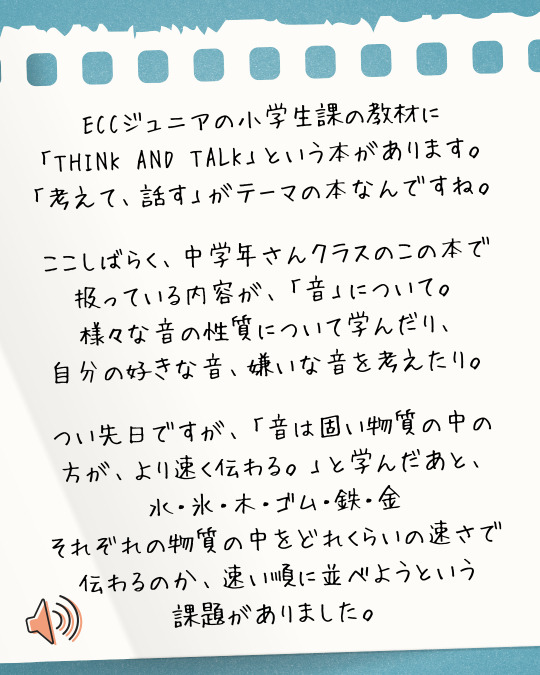 ECCジュニアの小学生課の教材に
「THINK AND TALK」という本があります。
「考えて、話す」がテーマの本なんですね。
ここしばらく、中学年さんクラスのこの本で
扱っている内容が、「音」について。
様々な音の性質について学んだり、
自分の好きな音、嫌いな音を考えたり。
つい先日ですが、「音は固い物質の中の
方が、より速く伝わる。」と学んだあと、
水・氷・木・ゴム・鉄・金
それぞれの物質の中をどれくらいの速さで
伝わるのか、速い順に並べようという
課題がありました。